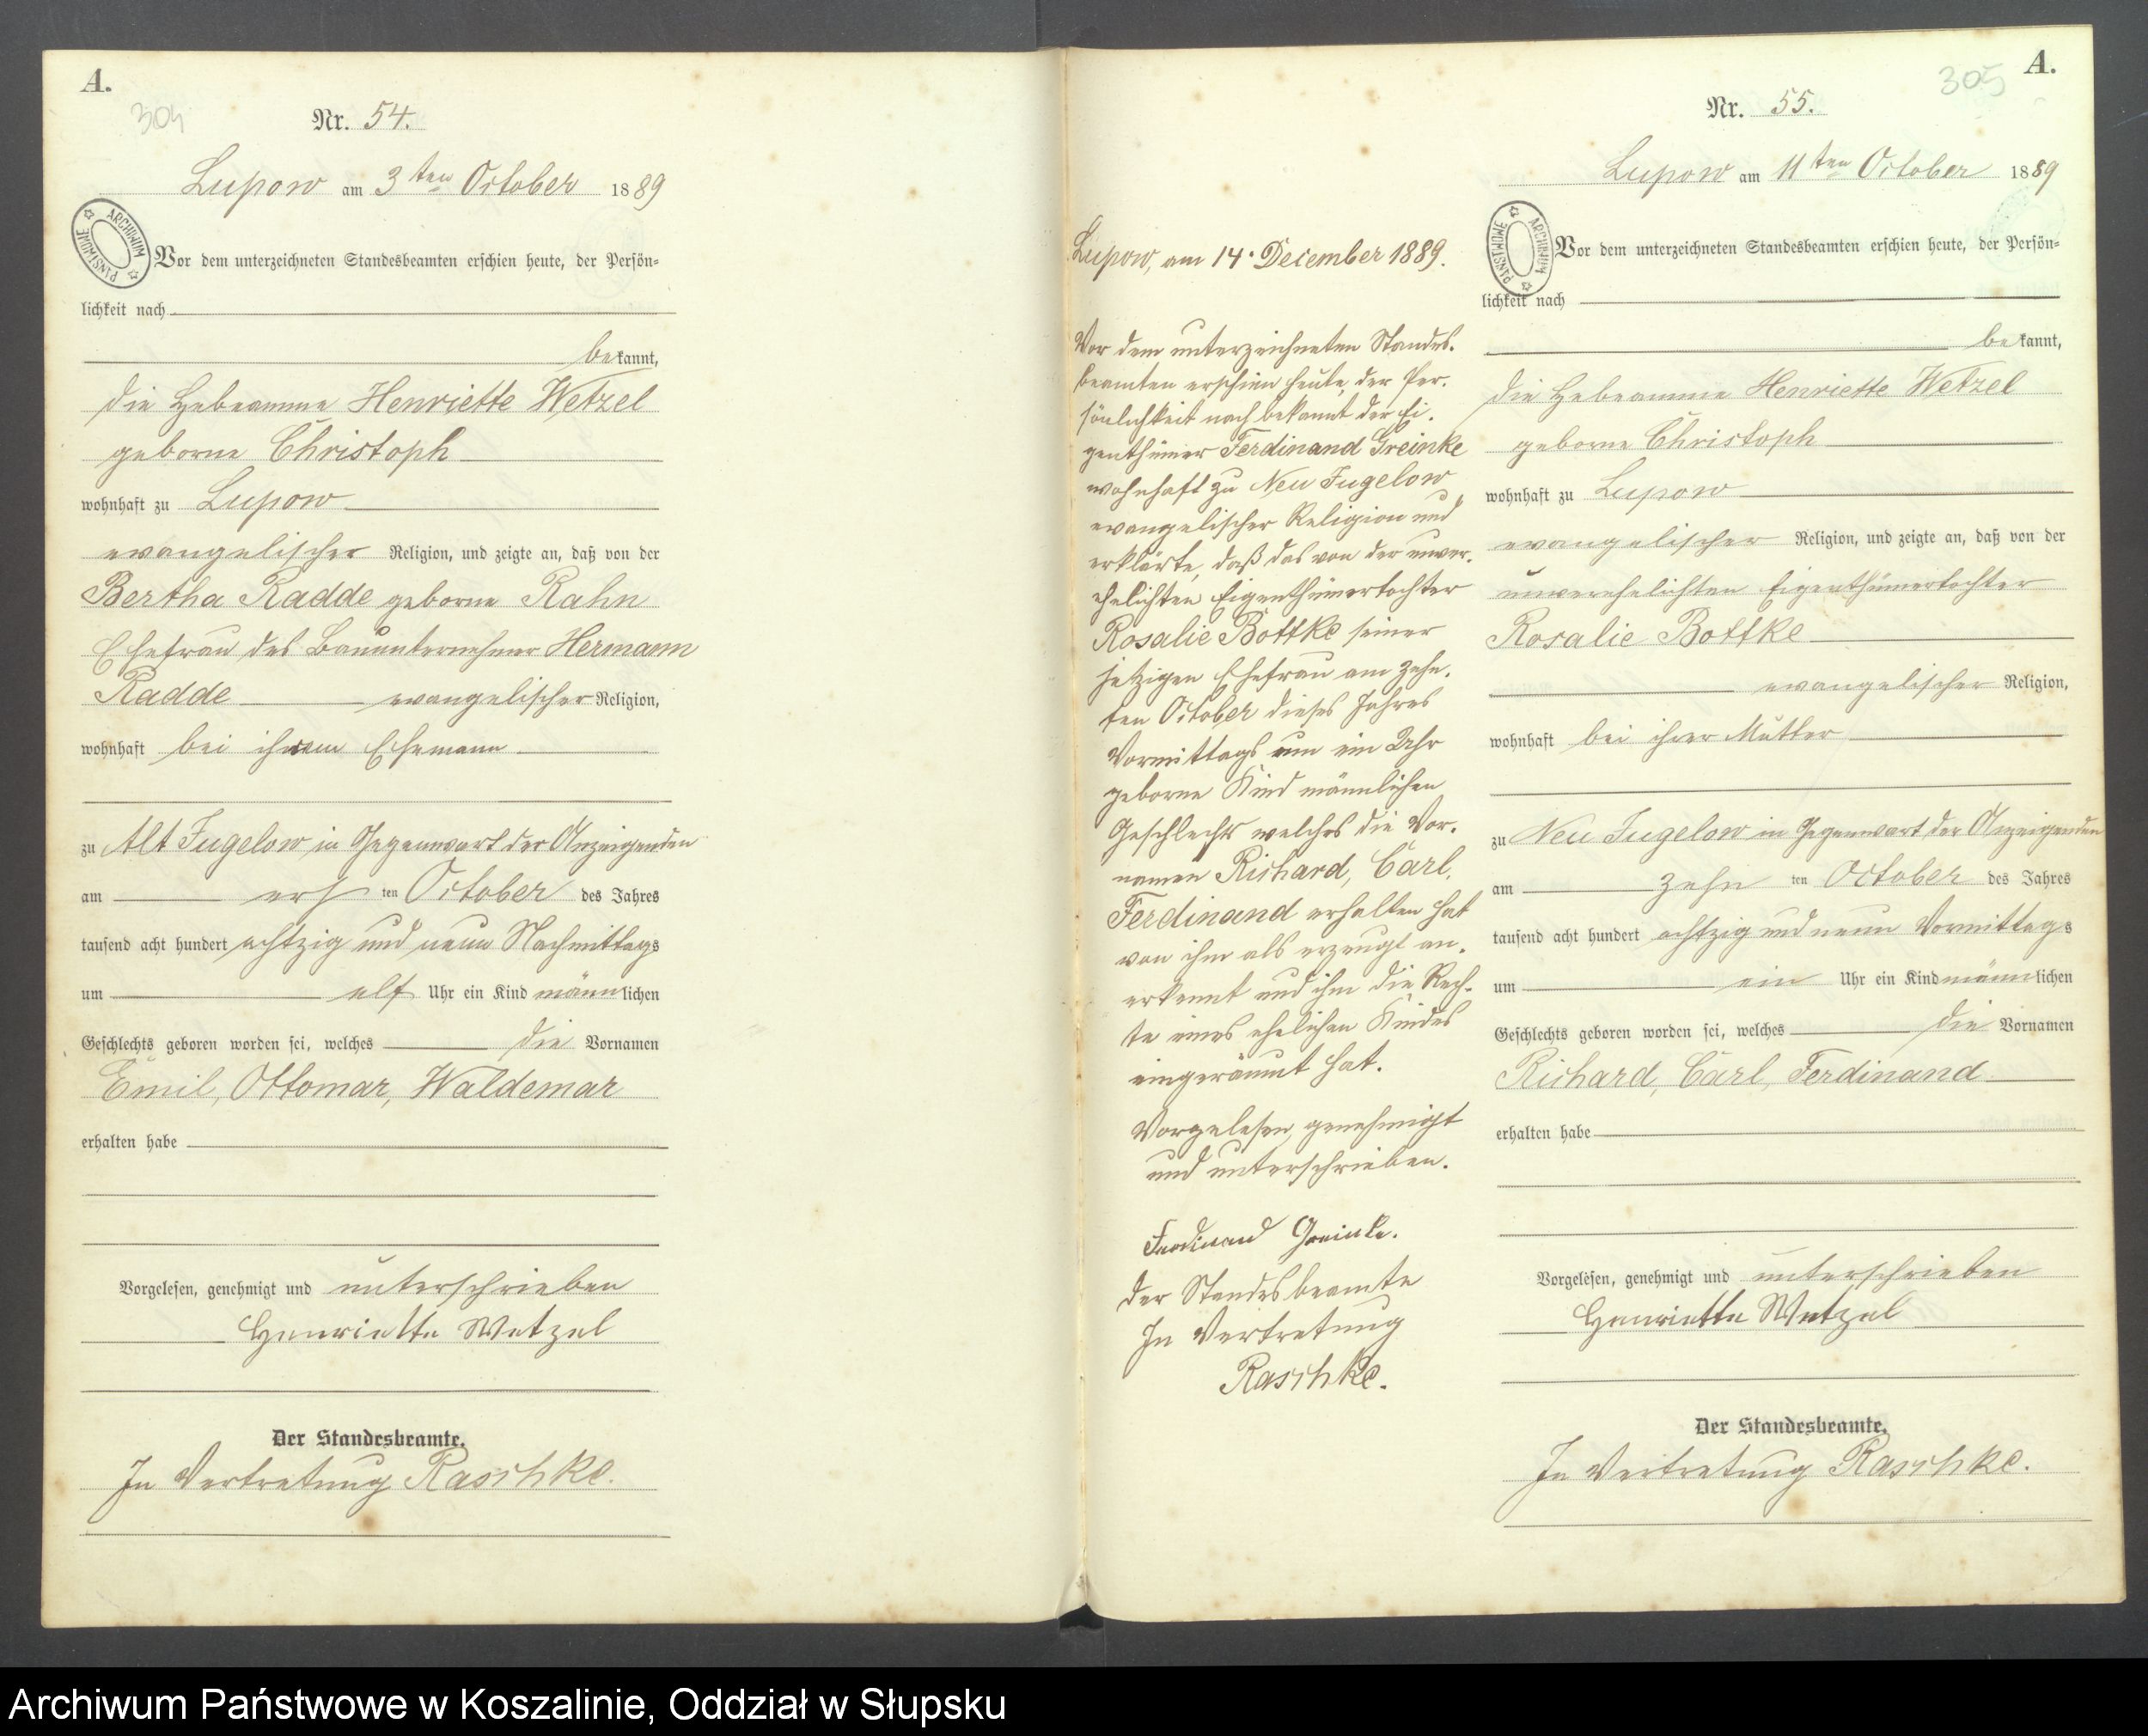 A.
304
Nr. 54.
Lupow am 3ten October 1889
ARCHIWUM PAŃSTWOWE
Vor dem unterzeichneten Standesbeamten erschien heute, der Persön-
lichkeit nach
bekannt,
die Hebeamme Henriette Wetzel
geborne Christoph
wohnhaft zu Lupow
evangelischer Religion, und zeigte an, daß von der
Bertha Radde geborne Rahn
Ehefrau des Bauunternehmer Hermann
Radde evangelischer Religion,
wohnhaft bei ihrem Ehemann
zu Alt Jugelow in Gegenwart der Anzeigenden
am ersten October des Jahres
tausend acht hundert achtzig und neun Nachmittags
um elf Uhr ein Kind männlichen
Geschlechts geboren worden sei, welches die Vornamen
Emil, Ottomar, Waldemar
erhalten habe
Vorgelesen, genehmigt und unterschrieben
Henriette Wetzel
Der Standesbeamte.
In Vertretung Raschke.
Lupow, am 14. December 1889.
Vor dem unterzeichneten Standes-
beamten erschien heute, der Per-
sönlichkeit nach bekannt der Ei-
genthümer Ferdinand Greinke
wohnhaft zu Neu Jugelow,
evangelischer Religion und
erklärte, daß das von der unver-
ehelichten Eigenthümertochter
Rosalie Bottke seiner
jetzigen Ehefrau am zehn-
ten October dieses Jahres
Vormittags um ein Uhr
geborne Kind männlichen
Geschlechts welches die Vor-
namen Richard, Carl,
Ferdinand erhalten hat
von ihm als erzeugt an-
erkennt und ihm die Rech-
te eines ehelichen Kindes
eingeräumt hat.
Vorgelesen, genehmigt
und unterschrieben.
Ferdinand Greinke.
Der Standesbeamte
In Vertretung
Raschke.
A.
305
Nr. 55.
Lupow am 11ten October 1889
ARCHIWUM PAŃSTWOWE
Vor dem unterzeichneten Standesbeamten erschien heute, der Persön-
lichkeit nach
bekannt,
die Hebeamme Henriette Wetzel
geborne Christoph
wohnhaft zu Lupow
evangelischer Religion, und zeigte an, daß von der
unverehelichten Eigenthümertochter
Rosalie Bottke
evangelischer Religion,
wohnhaft bei ihrer Mutter
zu Neu Jugelow in Gegenwart der Anzeigenden
am zehnten October des Jahres
tausend acht hundert achtzig und neun Vormittags
um ein Uhr ein Kind männlichen
Geschlechts geboren worden sei, welches die Vornamen
Richard, Carl, Ferdinand
erhalten habe
Vorgelesen, genehmigt und unterschrieben
Henriette Wetzel
Der Standesbeamte.
In Vertretung Raschke.
Archiwum Państwowe w Koszalinie, Oddział w Słupsku